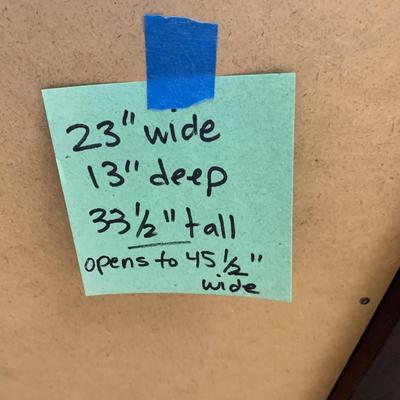 23" wide
13" deep
33 1/2" tall
opens to 45 1/2"
wide